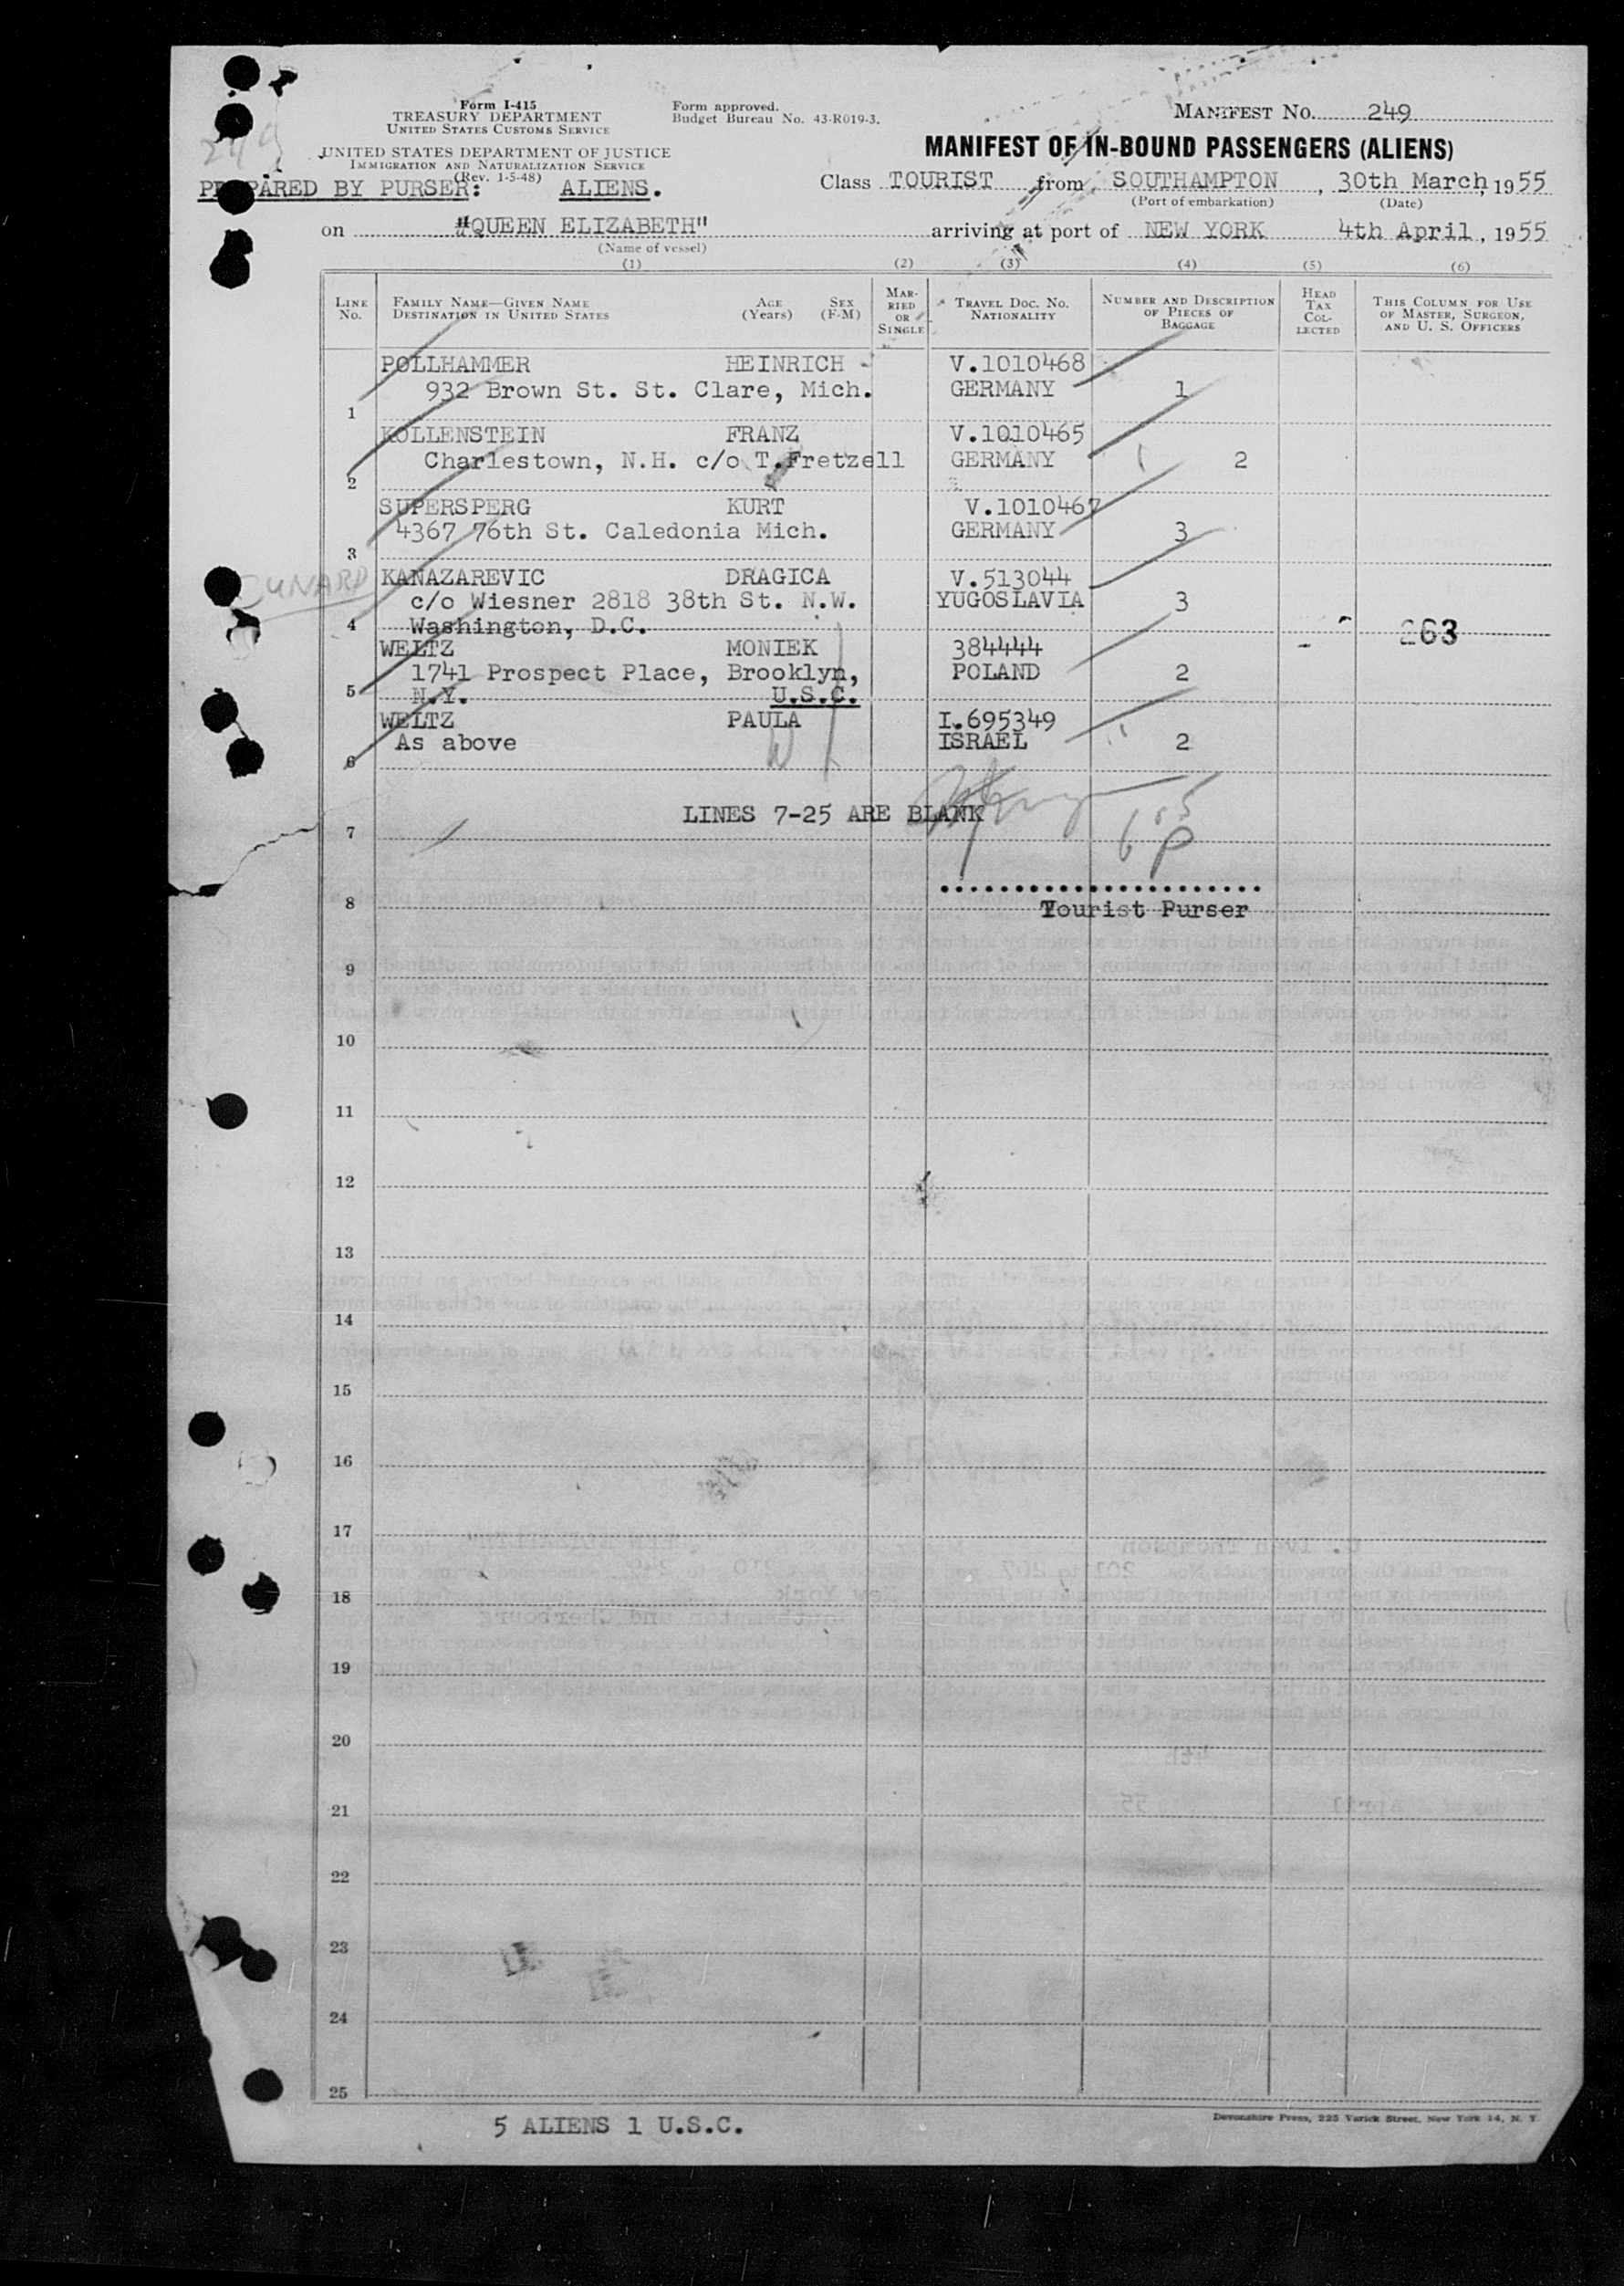 Form I-415
TREASURY DEPARTMENT
UNITED STATES CUSTOMS SERVICE
UNITED STATES DEPARTMENT OF JUSTICE
IMMIGRATION AND NATURALIZATION SERVICE
(Rev. 1-5-48)
Form approved.
Budget Bureau No. 43-R019-3.
MANIFEST No. 249
249
MANIFEST OF IN-BOUND PASSENGERS (ALIENS)
PREPARED BY PURSER: ALIENS.
Class TOURIST from SOUTHAMPTON, 30th March, 1955
(Port of embarkation) (Date)
on "QUEEN ELIZABETH" arriving at port of NEW YORK 4th April, 1955
(Name of vessel)
(1) (2) (3) (4) (5) (6)
LINE No.
FAMILY NAME—GIVEN NAME DESTINATION IN UNITED STATES
AGE (Years)
SEX (F-M)
MARRIED OR SINGLE
TRAVEL DOC. NO. NATIONALITY
NUMBER AND DESCRIPTION OF PIECES OF BAGGAGE
HEAD TAX COLLECTED
THIS COLUMN FOR USE OF MASTER, SURGEON, AND U. S. OFFICERS
POLLHAMMER HEINRICH V.1010468
932 Brown St. St. Clare, Mich. GERMANY 1
1
KOLLENSTEIN FRANZ V.1010465
Charlestown, N.H. c/o T.Fretzell GERMANY 2
2
SUPERSPERG KURT V.1010467
4367 76th St. Caledonia Mich. GERMANY 3
3
CUNARD
KANAZAREVIC DRAGICA V.513044
c/o Wiesner 2818 38th St. N.W. YUGOSLAVIA 3
4 Washington, D.C. 263
WELTZ MONIEK 384444
1741 Prospect Place, Brooklyn, POLAND 2
5 N.Y. U.S.C.
WELTZ PAULA I.695349
As above ISRAEL 2
6
LINES 7-25 ARE BLANK
7
8 Tourist Purser
9
10
11
12
13
14
15
16
17
18
19
20
21
22
23
24
25
5 ALIENS 1 U.S.C.
Devonshire Press, 225 Varick Street, New York 14, N. Y.